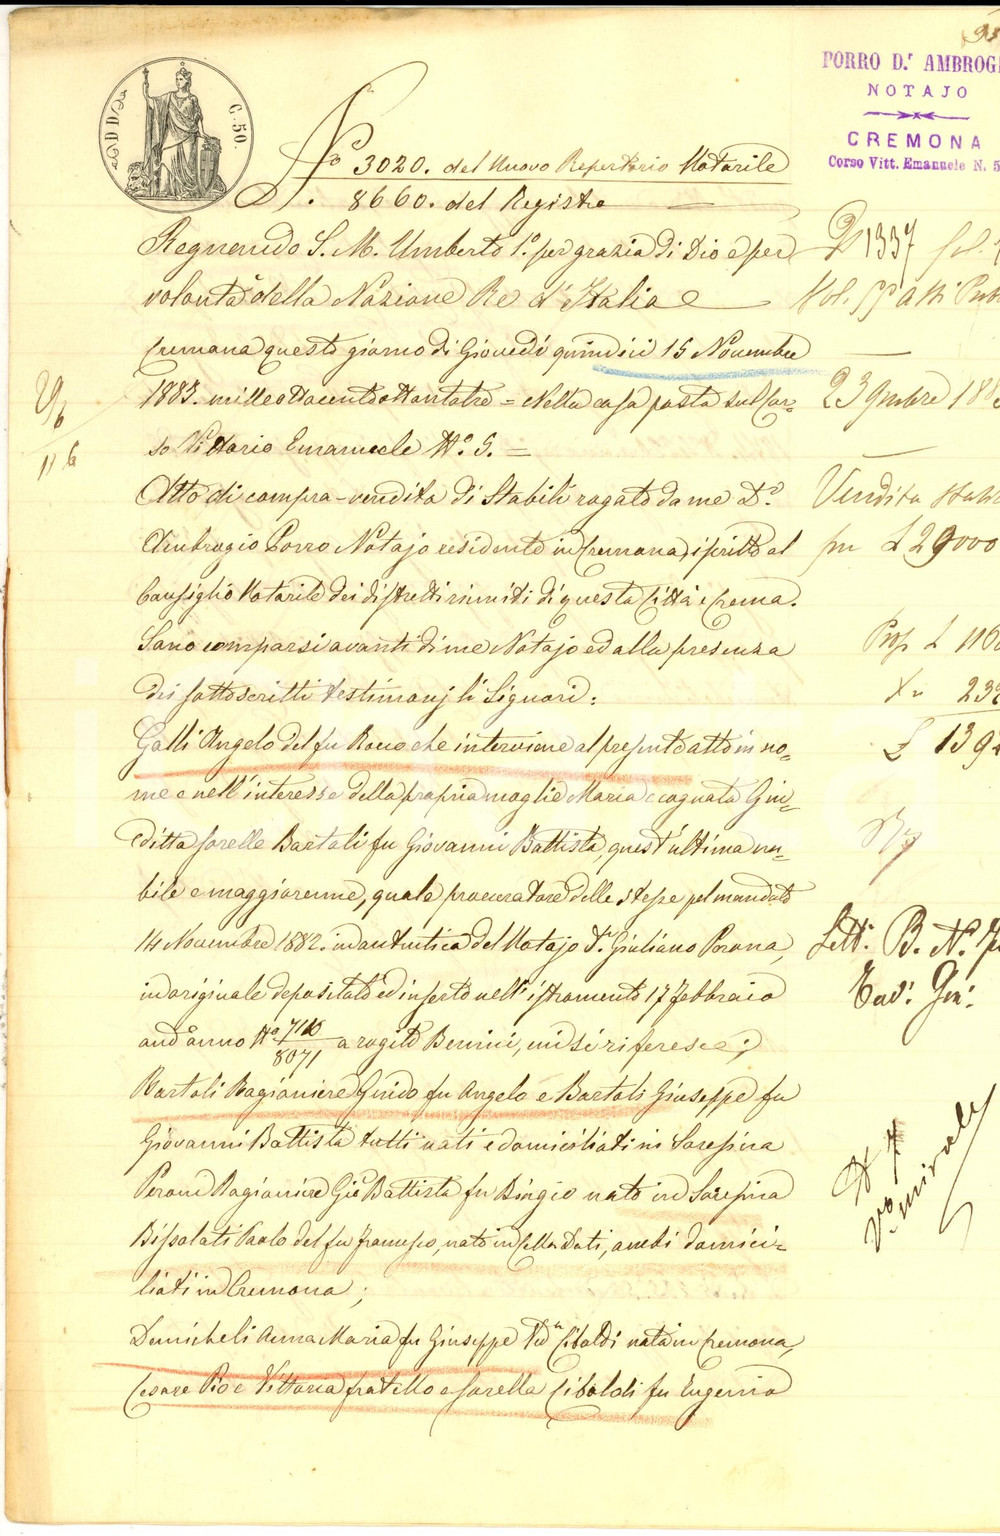 G. 50.
PORRO D.r AMBROGI
NOTAJO
CREMONA
Corso Vitt. Emanuele N. 5
N.o 3020. del Nuovo Repertorio Notarile
N. 8660. del Registro
Regnando S. M. Umberto I.o per grazia di Dio e per
volontà della Nazione Re d'Italia
Cremona questo giorno di Giovedì quindici 15 Novembre
1883. milleottocentottantatre = Nella casa posta sul Cor=
so Vittorio Emanuele N.o 5. =
Atto di compra-vendita di Stabili rogato da me D.r
Ambrogio Porro Notajo residente in Cremona, iscritto al
Consiglio Notarile dei distretti riuniti di questa Città e Crema.
Sono comparsi avanti di me Notajo ed alla presenza
dei sottoscritti testimonj li Signori:
Galli Angelo del fu Rocco che interviene al presente atto in no=
me e nell'interesse della propria moglie Maria e cognata Giu=
ditta sorelle Bartoli fu Giovanni Battista, quest'ultima nu=
bile e maggiorenne, quale procuratore delle stesse pel mandato
14 Novembre 1882. in autentica del Notajo D.r Giuliano
in originale depositato ed inserto nell'istromento 17 febbraio
and.o anno N.o 8071 a rogito cui si riferesce;
Bartoli Ragioniere Guido fu Angelo e Bartoli Giuseppe fu
Giovanni Battista tutti nati e domiciliati in Soresina
Ragioniere Gio Battista fu Biagio nato in Soresina
Bissolati Paolo del fu Francesco, nato in Cella Dati, ambi domici=
liati in Cremona;
Anna Maria fu Giuseppe Ved.a Ciboldi nata in Cremona,
Cesare Pio e Vittoria fratello e sorella Ciboldi fu Eugenio
N 1337 fol.
Vol. 55 Atti Pub
23 9mbre 188
Vendita stab
per £ 29000
Prop £ 116
232
£ 139
Lett. B. N.